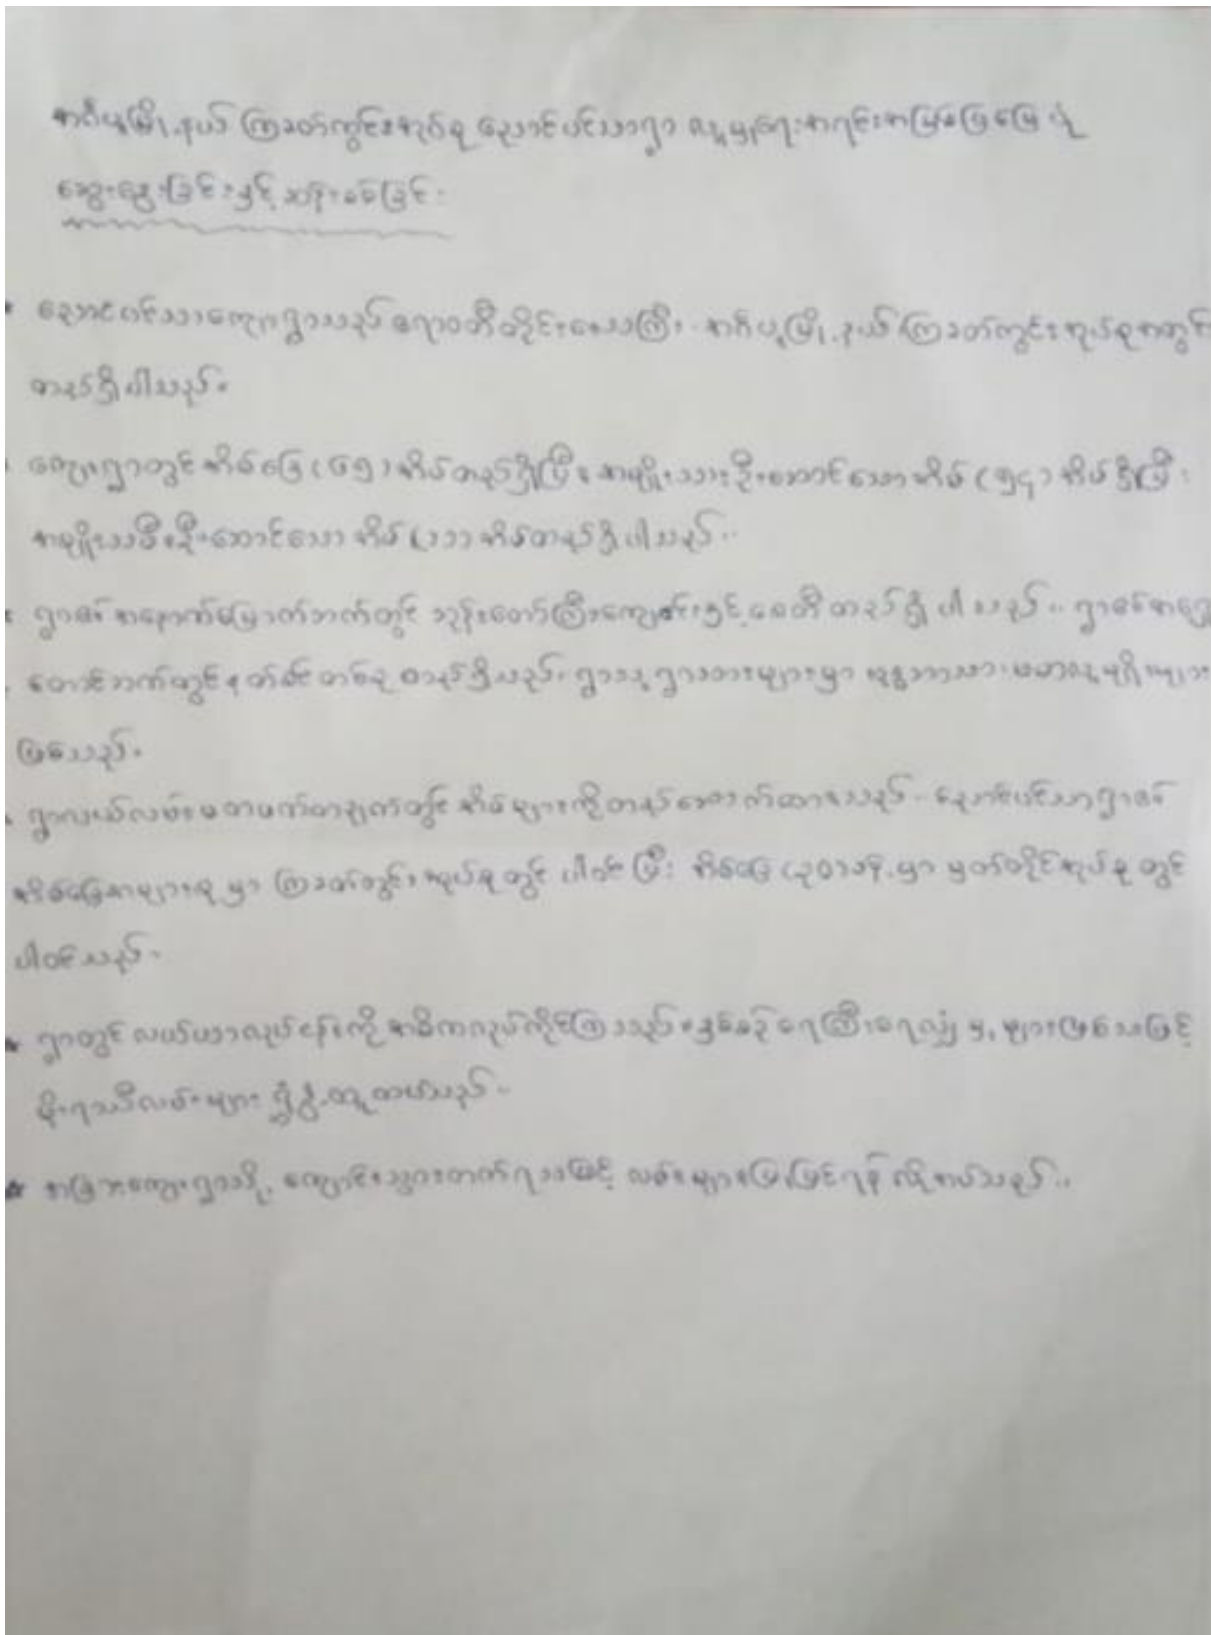 အင်္ဂပူမြို့နယ် ကြခတ်ကွင်းအုပ်စု ညောင်ပင်သာရွာ လူမှုရေးအရင်းအမြစ်ပြမြေပုံ
ဆွေးနွေးခြင်းနှင့်ဆန်းစစ်ခြင်း
ညောင်ပင်သာကျေးရွာသည် ဧရာဝတီတိုင်းဒေသကြီး အင်္ဂပူမြို့နယ် ကြခတ်ကွင်းအုပ်စုအတွင်
တည်ရှိပါသည်။
ကျေးရွာတွင် အိမ်ခြေ (၆၅) အိမ်တည်ရှိပြီး အမျိုးသားဦးဆောင်သောအိမ် (၅၄) အိမ်ရှိပြီး
အမျိုးသမီးဦးဆောင်သော အိမ် (၁၁) အိမ်တည်ရှိပါသည်။
ရွာ၏ အနောက်မြောက်ဘက်တွင် ဘုန်းတော်ကြီးကျောင်းနှင့်စေတီတည်ရှိပါသည်။ ရွာ၏အရှေ့
တောင်ဘက်တွင် နတ်စင်တစ်ခု တည်ရှိသည်။ ရွာသူရွာသားများမှာ ဗုဒ္ဓဘာသာ ဗမာလူမျိုးများ
ဖြစ်သည်။
ရွာလယ်လမ်းမတဖက်တချက်တွင် အိမ်များကိုတည်ဆောက်ထားသည်။ ညောင်ပင်သာရွာ၏
အိမ်ခြေအများစုမှာ ကြခတ်ကွင်းအုပ်စုတွင် ပါဝင်ပြီး အိမ်ခြေ မှာ အုပ်စုတွင်
ပါဝင်သည်။
ရွာတွင် လယ်ယာလုပ်ငန်းကို အဓိကလုပ်ကိုင်ကြသည်။ နှစ်စဉ် ရေကြီးရေလျှံမှုများဖြစ်သဖြင့်
မိုးရာသီလမ်းများ ရွှံ့နွံထူထပ်သည်။
အခြားကျေးရွာသို့ ကျောင်းသွားတက်ရသဖြင့် လမ်းများပြုပြင်ရန် လိုအပ်သည်။